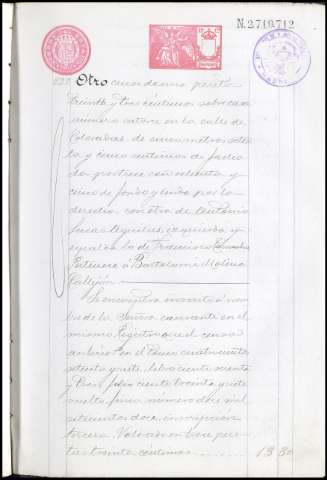 N.2.719.712
Otro censo de una peseta
treinta y tres céntimos sobre casa
número catorce en la calle de
Coloradas, de cinco metros seten
ta y cinco céntimos de facha
da por trece con ochenta y
cinco de fondo y linda por la
derecha con otra de Antonio
izquierda y
espalda la de Francisco
Pertenece á Bartolomé Molina
Callejón
Se encuentra inscrito á nom
bre de la Señora causante en el
mismo Registro que el censo
anterior en el tomo cuatrocientos
setenta y siete, libro ciento sesenta
y tres, folio ciento treinta y siete
vuelto, finca número doce mil
setecientos doce, inscripción
tercera. Valorado en trece pese
tas treinta céntimos
13 30